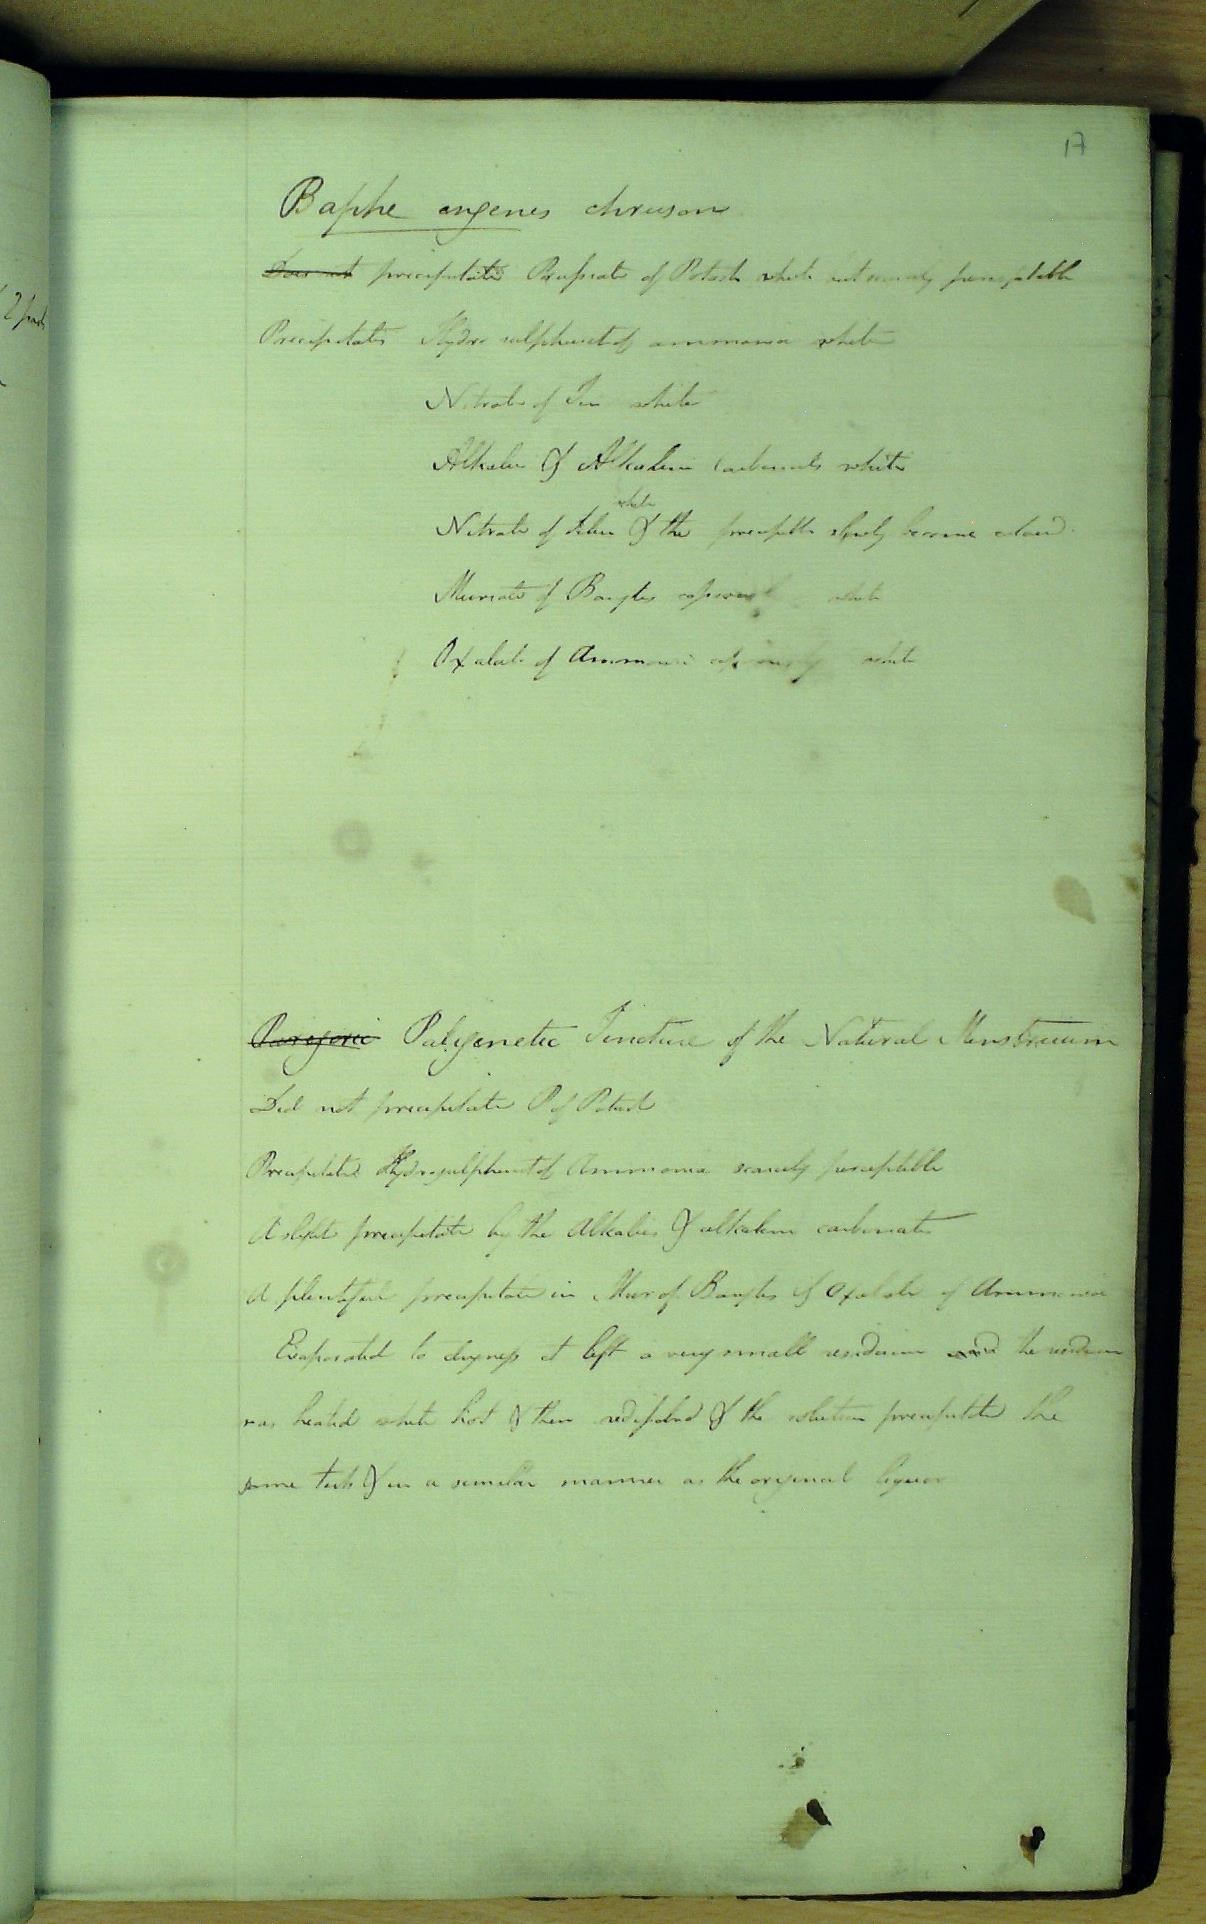 17
Baphe eugenes chruson
Does not precipitates Prussiate of Potash white but scarcely perceptible
Precipitates Hydro sulphuret of ammonia white
Nitrate of Tin white
Alkalies & Alkaline Carbonates white
white
Nitrate of Silver & the precipitate slowly became colored
Muriate of Barytes copiously white
Oxalate of Ammonia copiously white
2 parts
Paregoric Paligenetic Tincture of the Natural Menstruum
Did not precipitate P of Potash
Precipitated Hydrosulphuret of Ammonia scarcely perceptible
A slight precipitate by the Alkalies & alkaline carbonates
A plentiful precipitate in Mur of Barytes & Oxalate of Ammonia
Evaporated to dryness it left a very small residuum and the residuum
was heated white hot & then redissolved & the solution precipitated the
same tests & in a similar manner as the original liquor